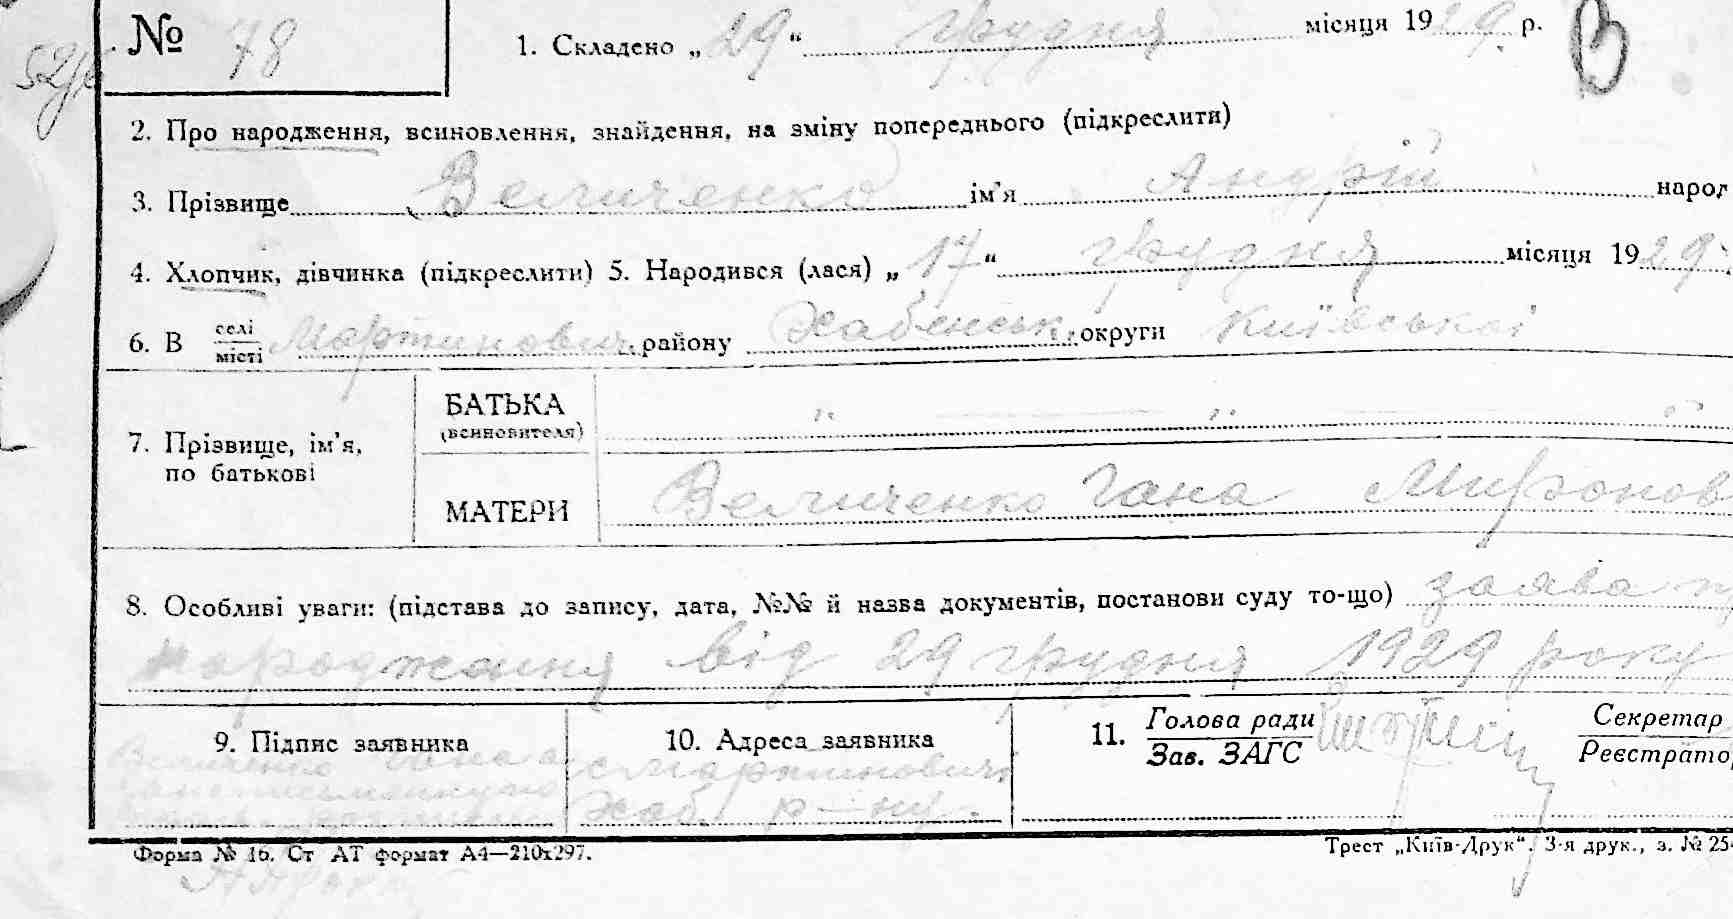 № 78
1. Складено „29“ грудня місяця 1929 р.
2. Про народження, всиновлення, знайдення, на зміну попереднього (підкреслити)
3. Прізвище Величенко ім'я Андрій народ
4. Хлопчик, дівчинка (підкреслити) 5. Народився (лася) „17“ грудня місяця 1929
6. В селі/місті Мартинович. району Хабенськ. округи Київської
7. Прізвище, ім'я, по батькові
БАТЬКА (всиновителя) „ „ „
МАТЕРИ Величенко Гана Миронов
8. Особливі уваги: (підстава до запису, дата, №№ й назва документів, постанови суду то-що) заява
народження від 29 грудня 1929 року
9. Підпис заявника
Величенко
10. Адреса заявника
с Мартиновичі
Хаб. р-ну.
11. Голова ради
Зав. ЗАГС
Секретар
Реєстрато
Форма № 16. Ст АТ формат А4—210х297.
Трест „Київ-Друк“. 3-я друк., з. № 25